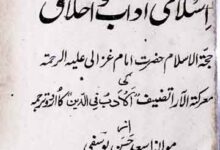 اسلامی آداب و اخلاق
حجۃ الاسلام حضرت امام غزالی علیہ الرحمۃ
کی
معرکۃ الآرا تصنیف "الادب فی الدین" کا اردو ترجمہ
از
مولانا سعد حسن یوسفی